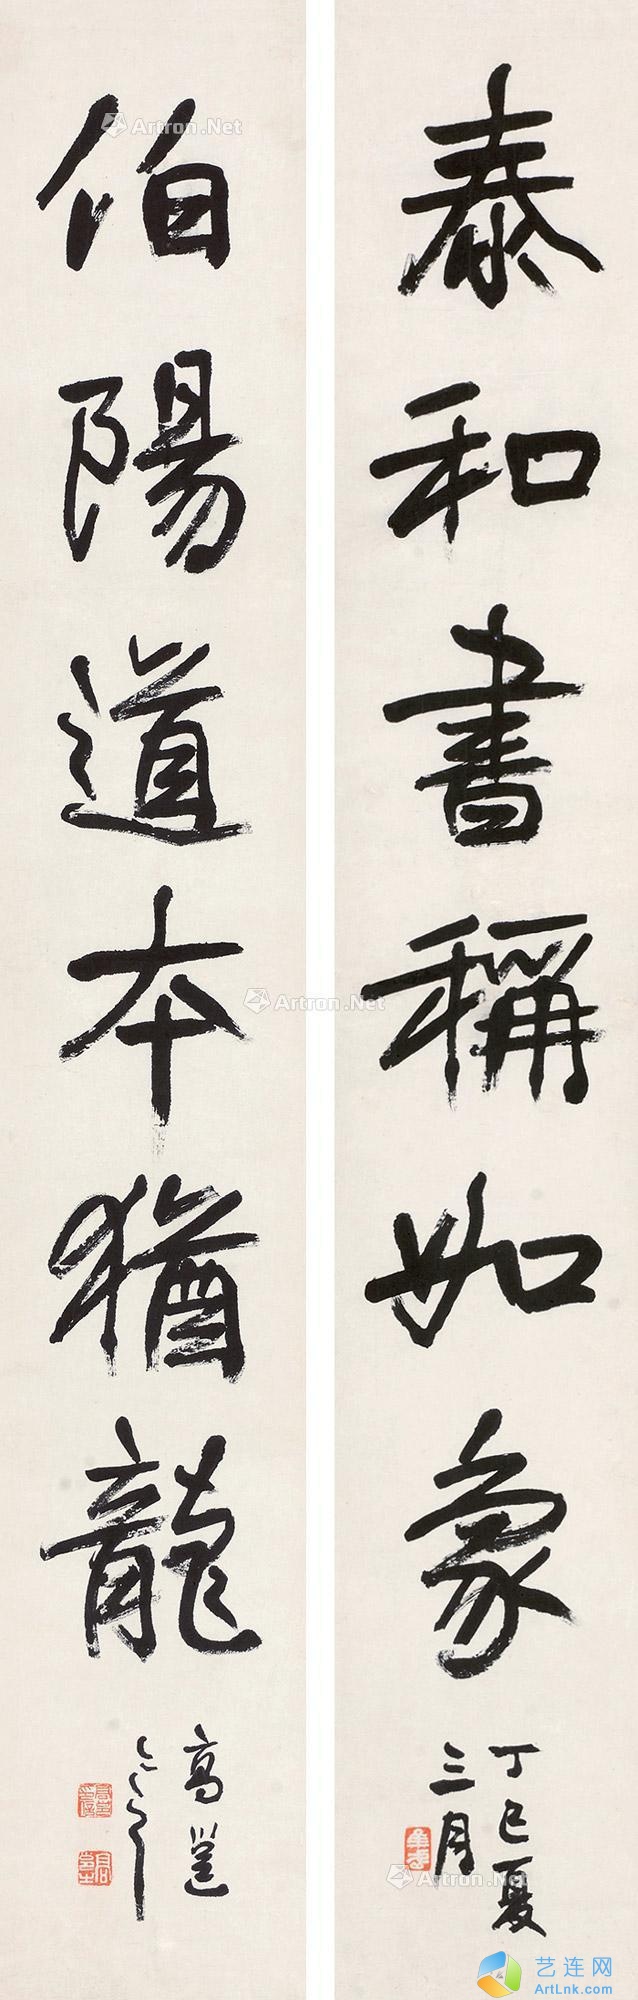 泰和書稱如象
丁巳夏
三月
伯陽道本猶龍
高邕
Artron.Net
Artron.Net
Artron.Net
Artron.Net
Artron.Net
Artron.Net
艺连网
ArtLnk.com